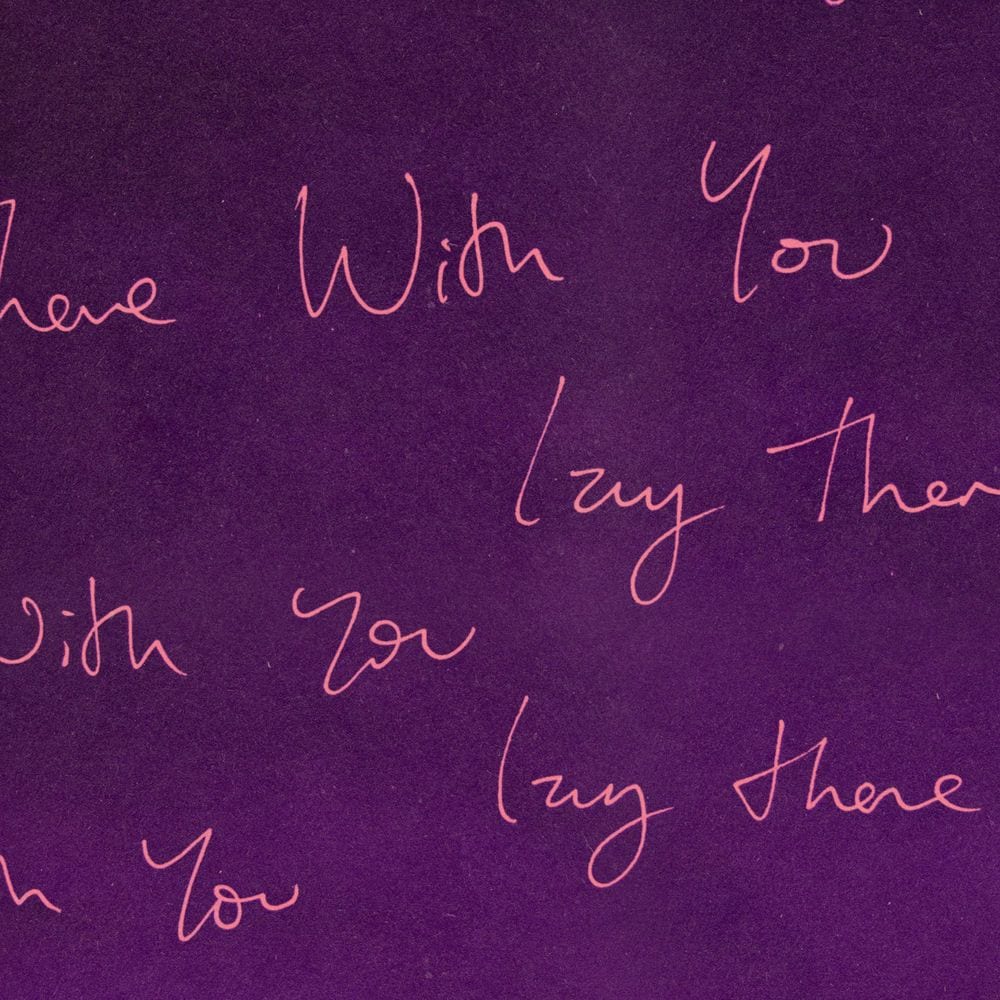 here With You
lay Ther
With You
lay there
h You